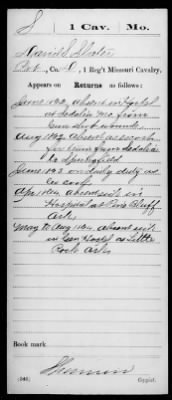 S | 1 Cav. | Mo.
Daniel S. Slater
Pvt., Co. , 1 Reg't Missouri Cavalry,
Appears on
Returns as follows:
June 1862, absent in Hospital
at Sedalia Mo. from
Gun Shot wounds.
Aug 1862 absent as escort
for train from Sedalia
to Springfield
June 1863 on daily duty as
Co cook
Apr 1864 absent sick in
Hospital at Pine Bluff
Ark
May to Aug 1864 absent sick
in Gen Hosptl at Little
Rock Ark
Book mark
(546)
Copyist.